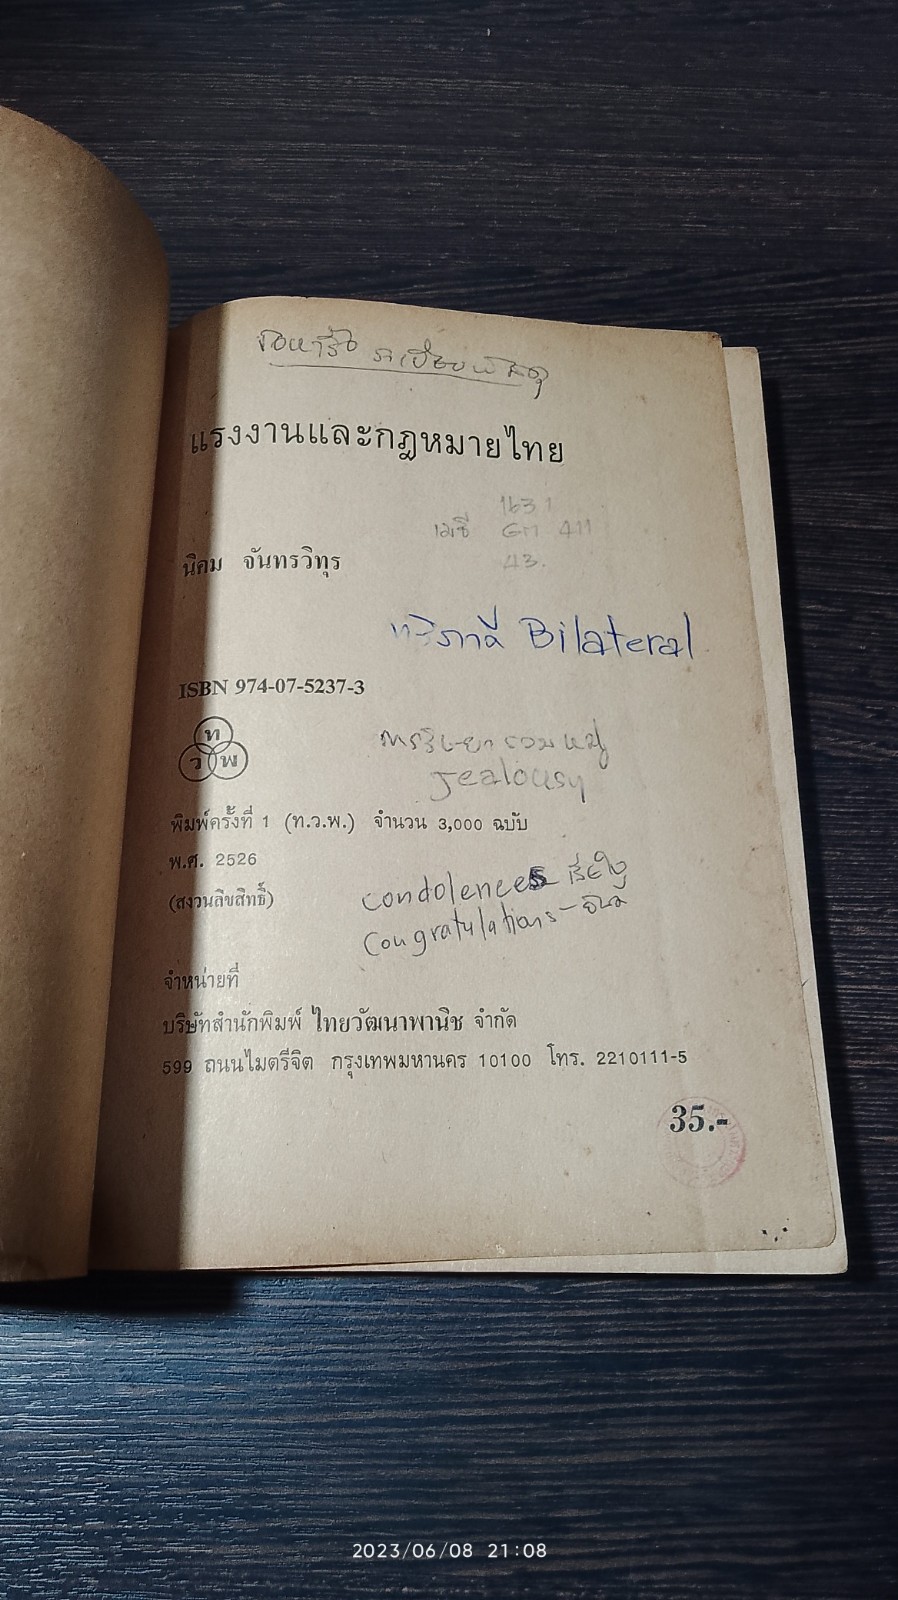 ขอหารือ ระเบียบพัสดุ
แรงงานและกฎหมายไทย
1631
เมธี 411
43.
นิคม จันทรวิทุร
ทวิภาคี Bilateral
ISBN 974-07-5237-3
ท
ว พ
การริษยา รวมหมู่
Jealousy
พิมพ์ครั้งที่ 1 (ท.ว.พ.) จำนวน 3,000 ฉบับ
พ.ศ. 2526
condolences
(สงวนลิขสิทธิ์)
Congratulations -
จำหน่ายที่
บริษัทสำนักพิมพ์ ไทยวัฒนาพานิช จำกัด
599 ถนนไมตรีจิต กรุงเทพมหานคร 10100 โทร. 2210111-5
35.-
2023/06/08 21:08